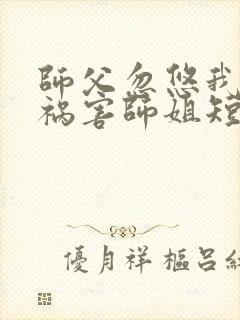 師父忽悠我
禍害師姐短
優月祥樞呂